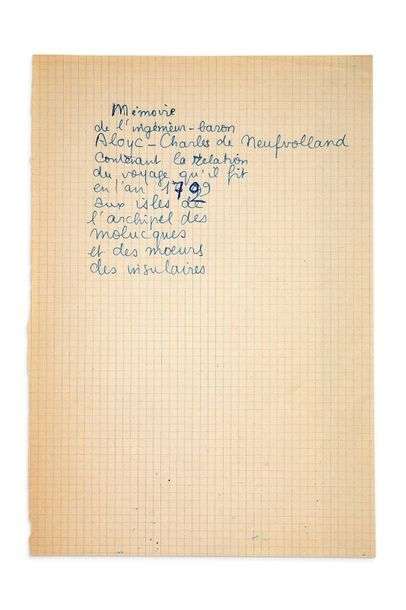 Mémoire
de l'ingénieur-baron
Aloyc-Charles de Neufvolland
Contenant la relation
du voyage qu'il fit
en l'an 1799
aux isles de
l'archipel des
molucques
et des moeurs
des insulaires